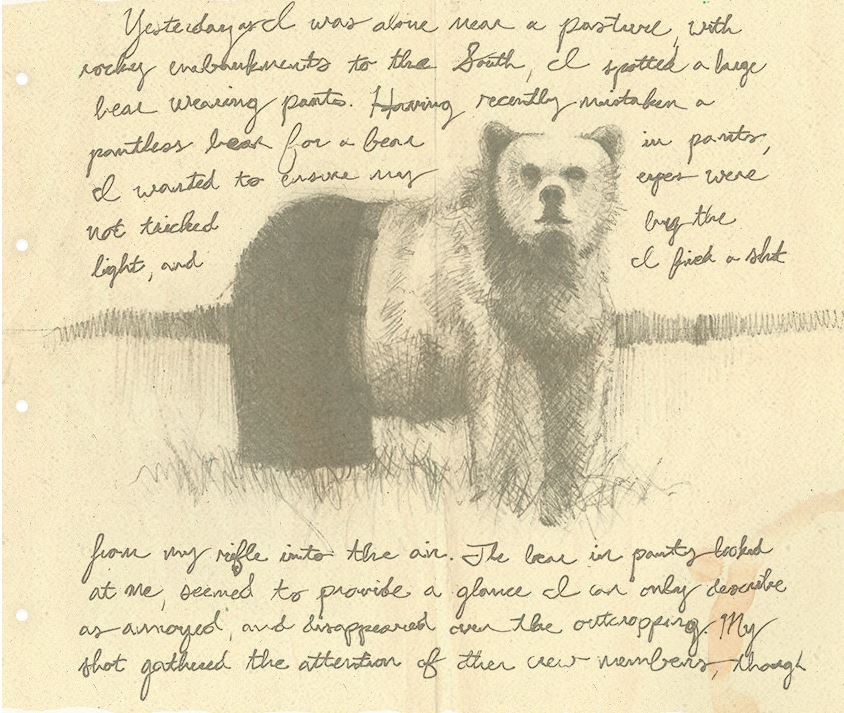 Yesterday I was alone near a pasture, with
rocky embankments to the South, I spotted a large
bear wearing pants. Having recently mistaken a
pantless bear for a bear in pants,
I wanted to ensure my eyes were
not tricked by the
light, and I fired a shot
from my rifle into the air. The bear in pants looked
at me, seemed to provide a glance I can only describe
as annoyed, and disappeared over the outcropping. My
shot gathered the attention of other crew members, though